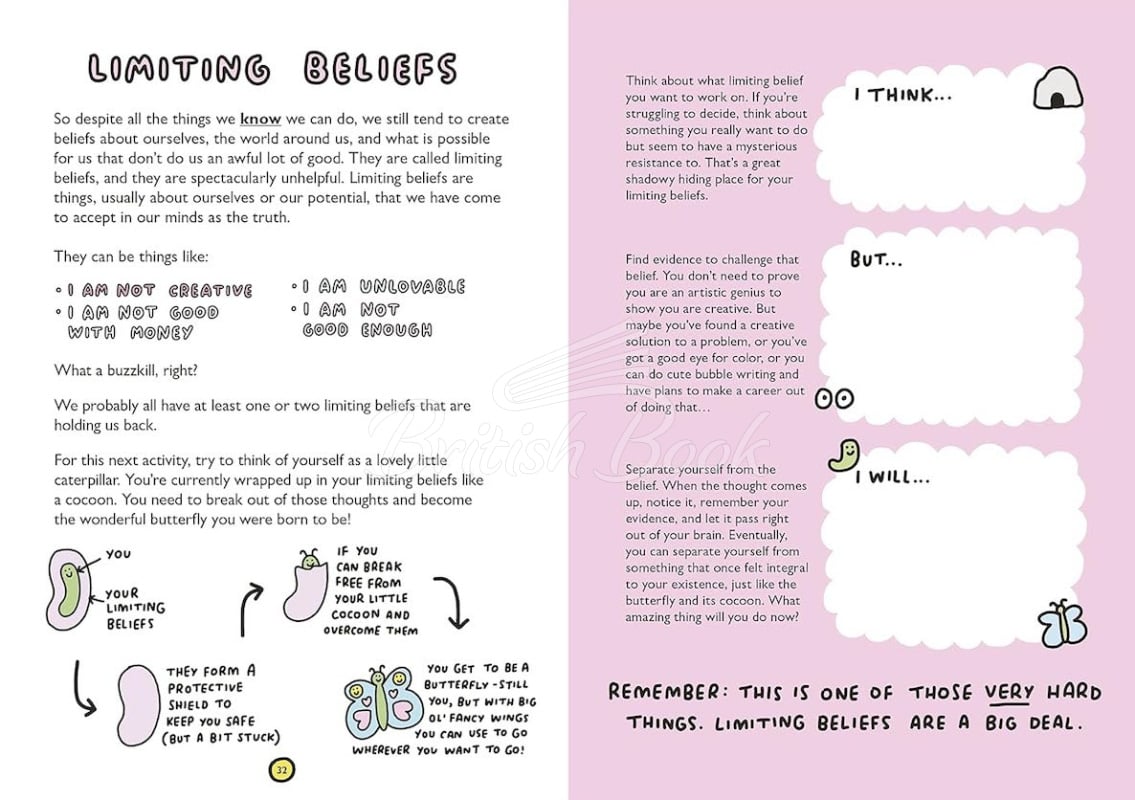 LIMITING BELIEFS
So despite all the things we know we can do, we still tend to create
beliefs about ourselves, the world around us, and what is possible
for us that don't do us an awful lot of good. They are called limiting
beliefs, and they are spectacularly unhelpful. Limiting beliefs are
things, usually about ourselves or our potential, that we have come
to accept in our minds as the truth.
They can be things like:
• I AM NOT CREATIVE
• I AM NOT GOOD
WITH MONEY
• I AM UNLOVABLE
• I AM NOT
GOOD ENOUGH
What a buzzkill, right?
We probably all have at least one or two limiting beliefs that are
holding us back.
For this next activity, try to think of yourself as a lovely little
caterpillar. You're currently wrapped up in your limiting beliefs like
a cocoon. You need to break out of those thoughts and become
the wonderful butterfly you were born to be!
YOU
YOUR
LIMITING
BELIEFS
THEY FORM A
PROTECTIVE
SHIELD TO
KEEP YOU SAFE
(BUT A BIT STUCK)
IF YOU
CAN BREAK
FREE FROM
YOUR LITTLE
COCOON AND
OVERCOME THEM
YOU GET TO BE A
BUTTERFLY - STILL
YOU, BUT WITH BIG
OL' FANCY WINGS
YOU CAN USE TO GO
WHEREVER YOU WANT TO GO!
32
Think about what limiting belief
you want to work on. If you're
struggling to decide, think about
something you really want to do
but seem to have a mysterious
resistance to. That's a great
shadowy hiding place for your
limiting beliefs.
I THINK...
Find evidence to challenge that
belief. You don't need to prove
you are an artistic genius to
show you are creative. But
maybe you've found a creative
solution to a problem, or you've
got a good eye for color, or you
can do cute bubble writing and
have plans to make a career out
of doing that…
BUT...
Separate yourself from the
belief. When the thought comes
up, notice it, remember your
evidence, and let it pass right
out of your brain. Eventually,
you can separate yourself from
something that once felt integral
to your existence, just like the
butterfly and its cocoon. What
amazing thing will you do now?
I WILL...
REMEMBER: THIS IS ONE OF THOSE VERY HARD
THINGS. LIMITING BELIEFS ARE A BIG DEAL.
British Book